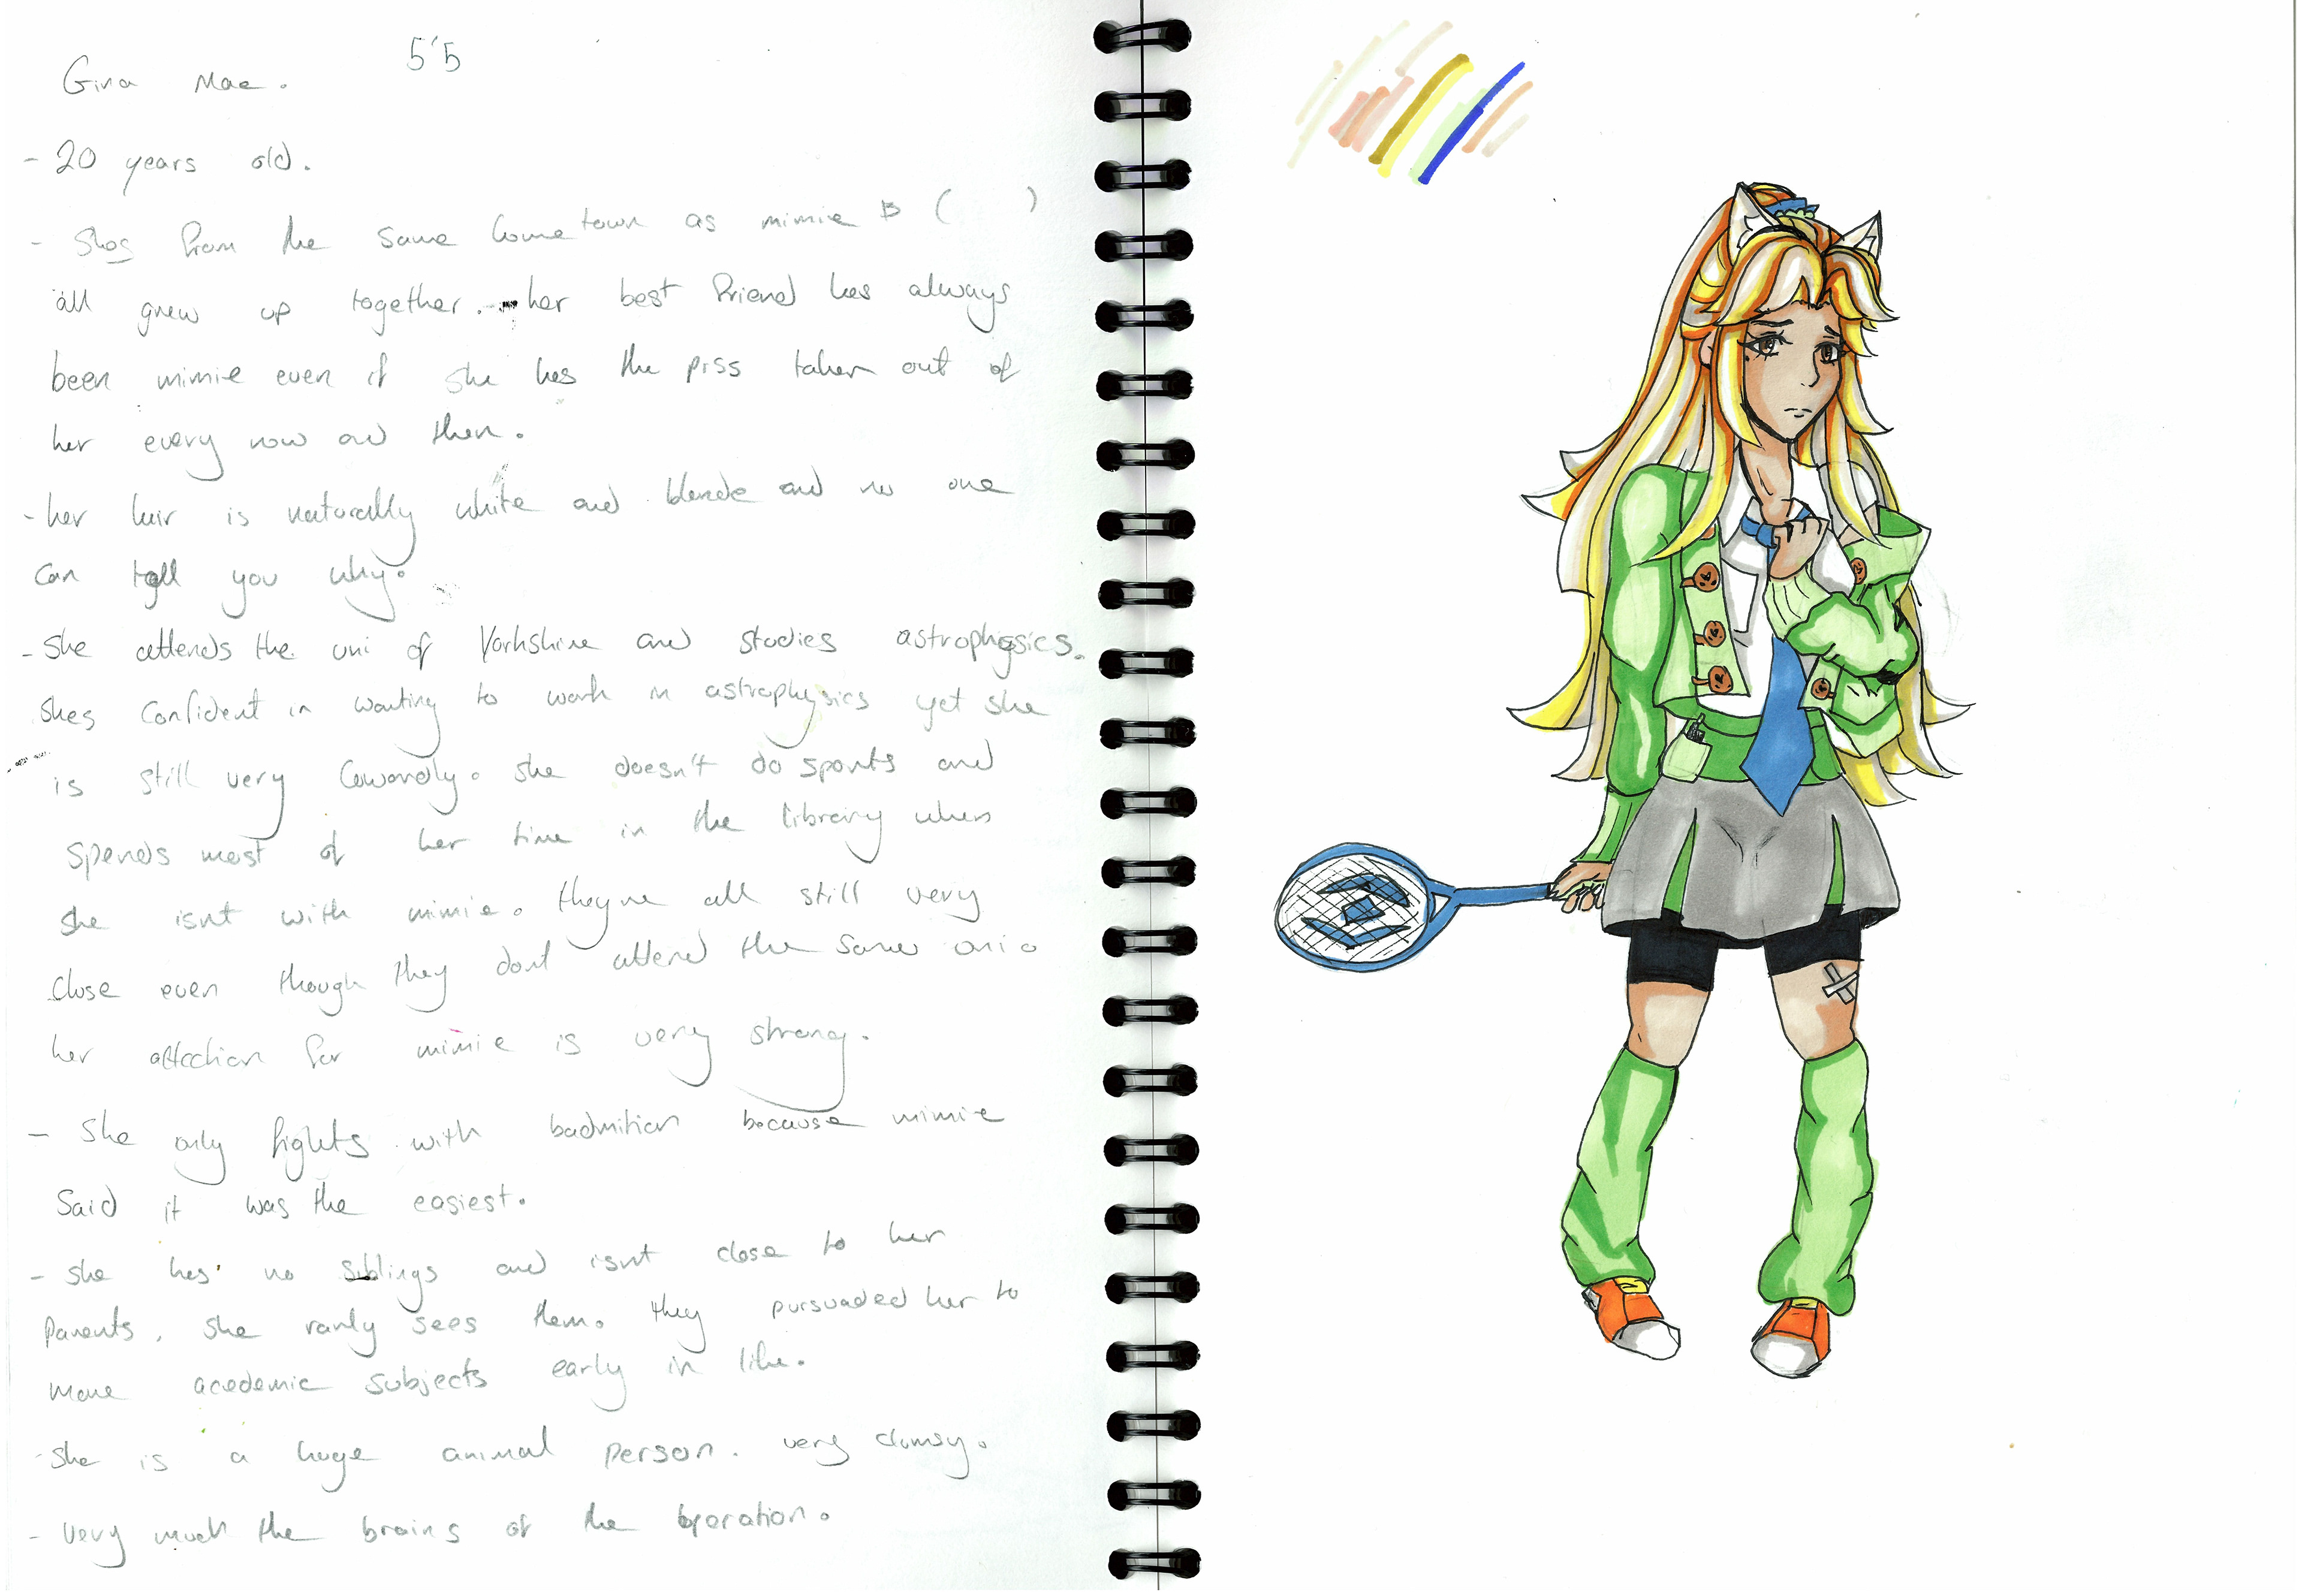 5'5
Gina Mae.
- 20 years old.
- Shes from the same hometown as mimie B ( )
all grew up together. her best friend has always
been mimie even if she has the piss taken out of
her every now and then.
- her hair is naturally white and blonde and no one
can tell you why.
- She attends the uni of Yorkshire and studies astrophysics.
shes confident in wanting to work in astrophysics yet she
is still very cowardly. she doesn't do sports and
spends most of her time in the library when
she isnt with mimie. theyre all still very
close even though they dont attend the same uni.
her affection for mimie is very strong.
- She only fights with badmition because mimie
said it was the easiest.
- she has no siblings and isnt close to her
parents, she rarly sees them. they pursuaded her to
more academic subjects early in life.
- she is a huge animal person. very clumsy.
- very much the brains of the operation.